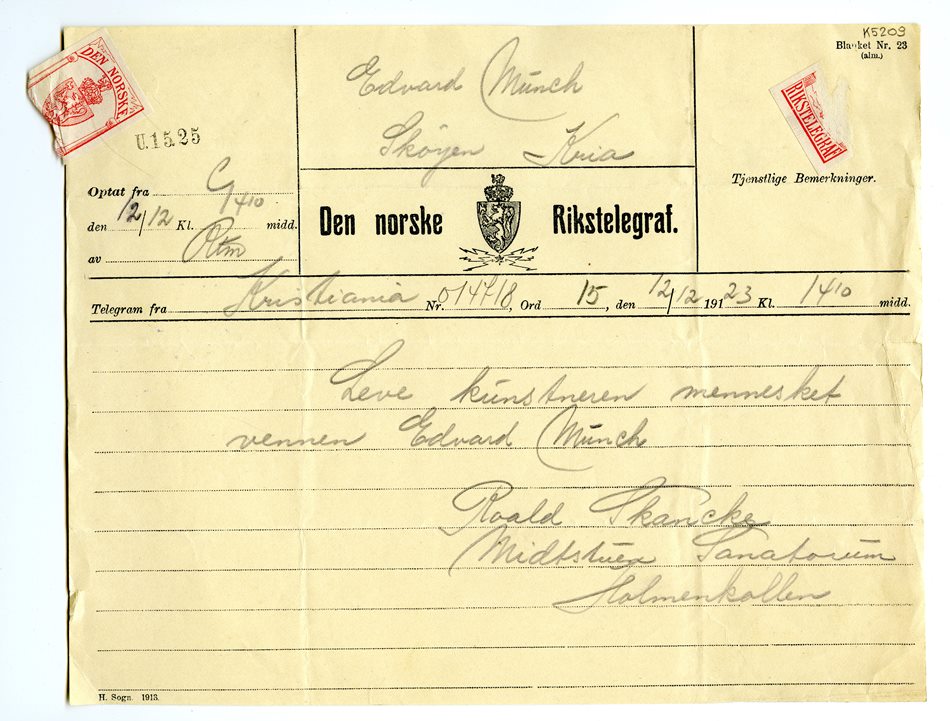 K5209
Blanket Nr. 23
(alm.)
DEN NORSKE
RIKSTELEGRAF
U.15.25
Edvard Munch
Skøyen Kria
Optat fra G
den 12/12 Kl. 1410 midd.
av
Den norske Rikstelegraf.
Tjenstlige Bemerkninger.
Telegram fra Kristiania Nr. 01478, Ord 15, den 12/12 1923 Kl. 1410 midd.
Leve kunstneren mennesket
vennen Edvard Munch
Roald Skancke
Midtstuen Sanatorium
Holmenkollen
H. Sogn. 1913.